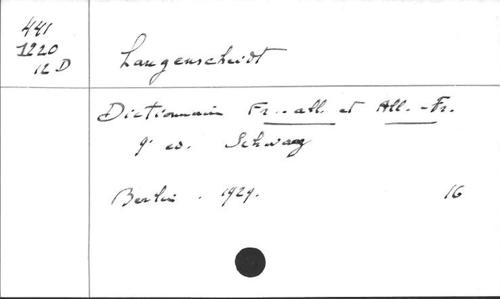 441
1220
12 D
Langenscheidt
Dictionnaire Fr.-all. et All.-Fr.
9e ed. Schwarz
Berlin. 1929. 16